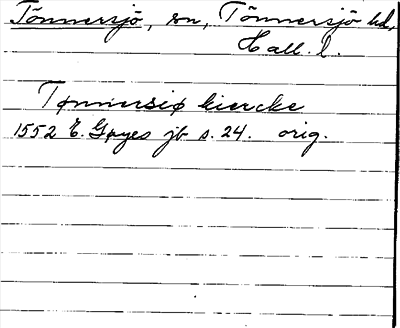 Tönnersjö, sn, Tönnersjö hd,
Hall. l.
Tønnersiø kiercke
1552 E. Gøyes jb s. 24. orig.